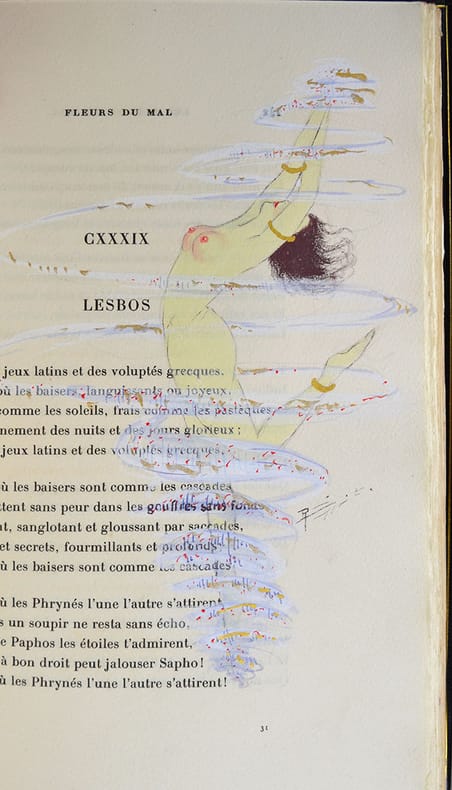 FLEURS DU MAL
CXXXIX
LESBOS
jeux latins et des voluptés grecques.
où les baisers, languissants ou joyeux,
comme les soleils, frais comme les pastèques,
nement des nuits et des jours glorieux ;
jeux latins et des voluptés grecques,
ù les baisers sont comme les cascades
ttent sans peur dans les gouffres sans fonds
nt, sanglotant et gloussant par saccades,
et secrets, fourmillants et profonds
ù les baisers sont comme les cascades
ù les Phrynés l'une l'autre s'attirent
s un soupir ne resta sans écho,
e Paphos les étoiles t'admirent,
à bon droit peut jalouser Sapho !
ù les Phrynés l'une l'autre s'attirent !
31